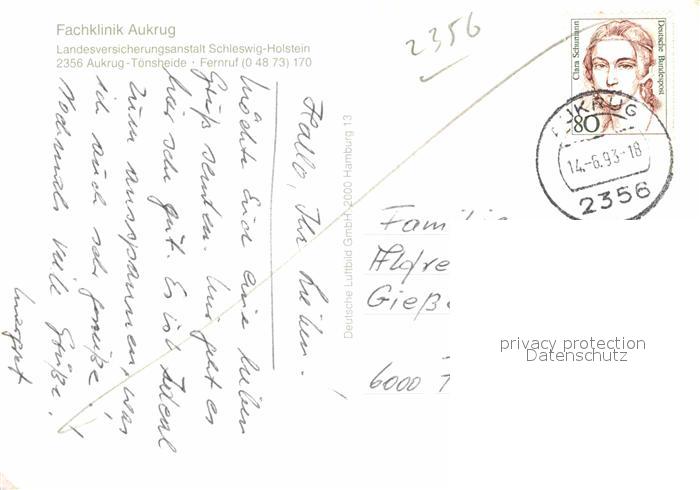 Fachklinik Aukrug
Landesversicherungsanstalt Schleswig-Holstein
2356 Aukrug-Tönsheide · Fernruf (0 48 73) 170
2356
Clara Schumann
Deutsche Bundespost
80
AUKRUG
14.-6.93-18
2356
Hallo, Ihr Lieben.
Möchte Euch eine lieben
Gruß senden. Mir geht es
hier sehr gut. Es ist Ideal
zum ausspannen, was
ich auch sehr genieße,
Nochmals viele Grüße.
Margret
Deutsche Luftbild GmbH, 2000 Hamburg 13
Familie
Gieß
6000
privacy protection
Datenschutz